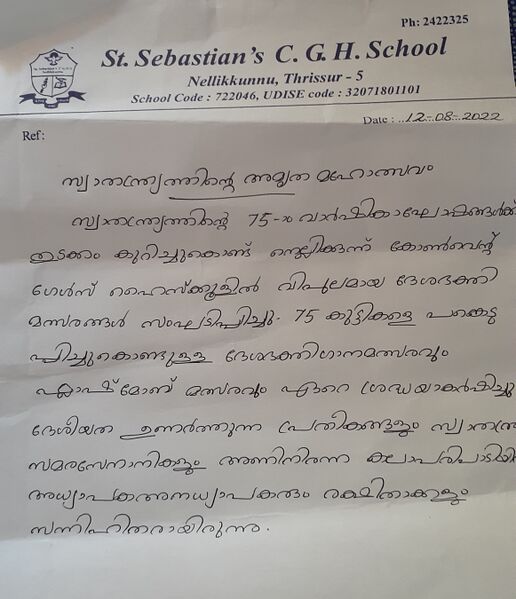 Ph: 2422325
St. Sebastian's C. G. H. School
Nellikkunnu, Thrissur - 5
School Code : 722046, UDISE code : 32071801101
Date : ..12-08-2022
Ref:
സ്വാതന്ത്ര്യത്തിന്റെ അമൃത മഹോത്സവം
സ്വാതന്ത്ര്യത്തിന്റെ 75-ാം വാർഷികാഘോഷങ്ങൾക്ക്
തുടക്കം കുറിച്ചുകൊണ്ട് നെല്ലിക്കുന്ന് കോൺവെന്റ്
ഗേൾസ് ഹൈസ്ക്കൂളിൽ വിപുലമായ ദേശഭക്തി
മത്സരങ്ങൾ സംഘടിപ്പിച്ചു. 75 കുട്ടികളെ പങ്കെടു
പ്പിച്ചുകൊണ്ടുള്ള ദേശഭക്തിഗാനമത്സരവും
ഫ്ലാഷ് മോബ് മത്സരവും ഏറെ ശ്രദ്ധയാകർഷിച്ചു
ദേശീയത ഉണർത്തുന്ന പ്രതീകങ്ങളും
സമരസേനാനികളും അണിനിരന്ന
അധ്യാപകഅനധ്യാപകരും രക്ഷിതാക്കളും
സന്നിഹിതരായിരുന്നു.